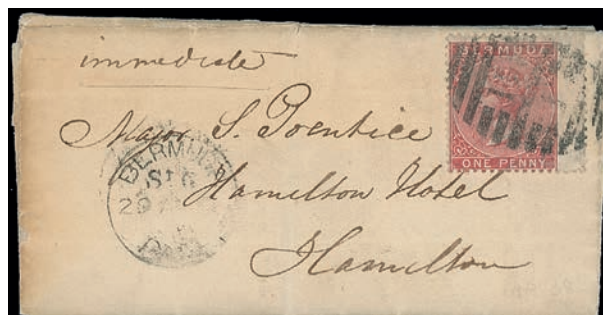 immediate
BERMUDA
ONE PENNY
Major S. Prentice
Hamilton Hotel
Hamilton
BERMUDA
29